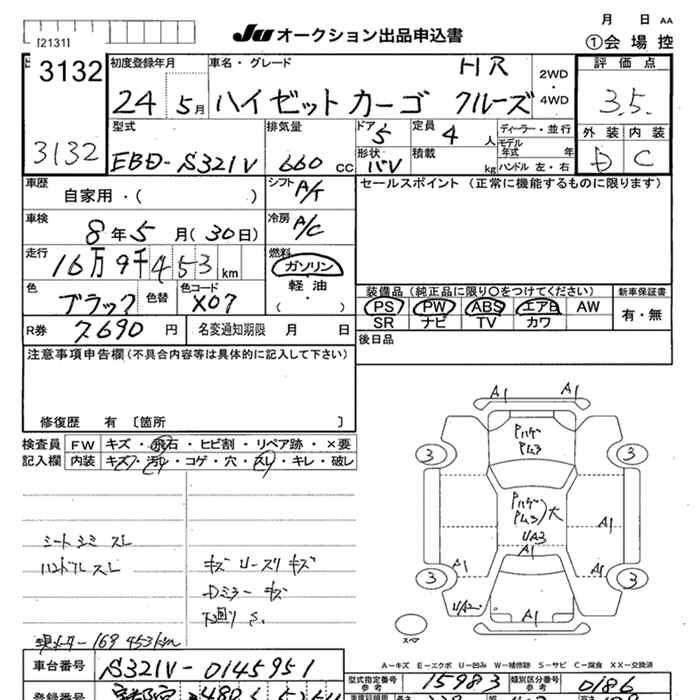 [2131]
Ju オークション出品申込書
月 日 AA
①会場控
3132
3132
初度登録年月
24 5月
車名・グレード
HR
ハイゼットカーゴ クルーズ
2WD
・
4WD
評価点
3.5
外装 内装
D C
型式
EBD-S321V
排気量
660 CC
ドア
5
形状
BV
定員
4 人
積載
kg
ディーラー・並行
モデル年式 年
ハンドル 左・右
車歴
自家用・( )
シフト
A/T
セールスポイント (正常に機能するものに限ります)
車検
8年5月(30日)
冷房
A/C
走行
16万9千453km
燃料
ガソリン
軽油
( ・ )
色
ブラック
色替
色コード
X07
装備品 (純正品に限り〇をつけてください)
PS PW ABS エアB AW
SR ナビ TV カワ
新車保証書
有・無
R券 7,690 円
名変通知期限 月 日
後日品
注意事項申告欄 (不具合内容等は具体的に記入して下さい)
修復歴 有 〔箇所 〕
検査員
記入欄
FW キズ・飛石・ヒビ割・リペア跡・×要
内装 キズ・汚レ・コゲ・穴・スレ・キレ・破レ
シートシミ スレ
ハンドルスレ
キズ U-ズリ キズ
Dミラー キズ
下廻り S.
現メーター 169 453km
A1
A1
Pハゲ
Pムラ
3
3
Pハゲ
Pムラ
大
UA3
A1
A1
A1
A1
3
3
UA2
A1
スペア
A-キズ E-エクボ U-凹み W-補修跡 S-サビ C-腐食 XX-交換済
車台番号
S321V-0145951
型式指定番号
参考
15983
類別区分番号
参考
0186
登録番号
480